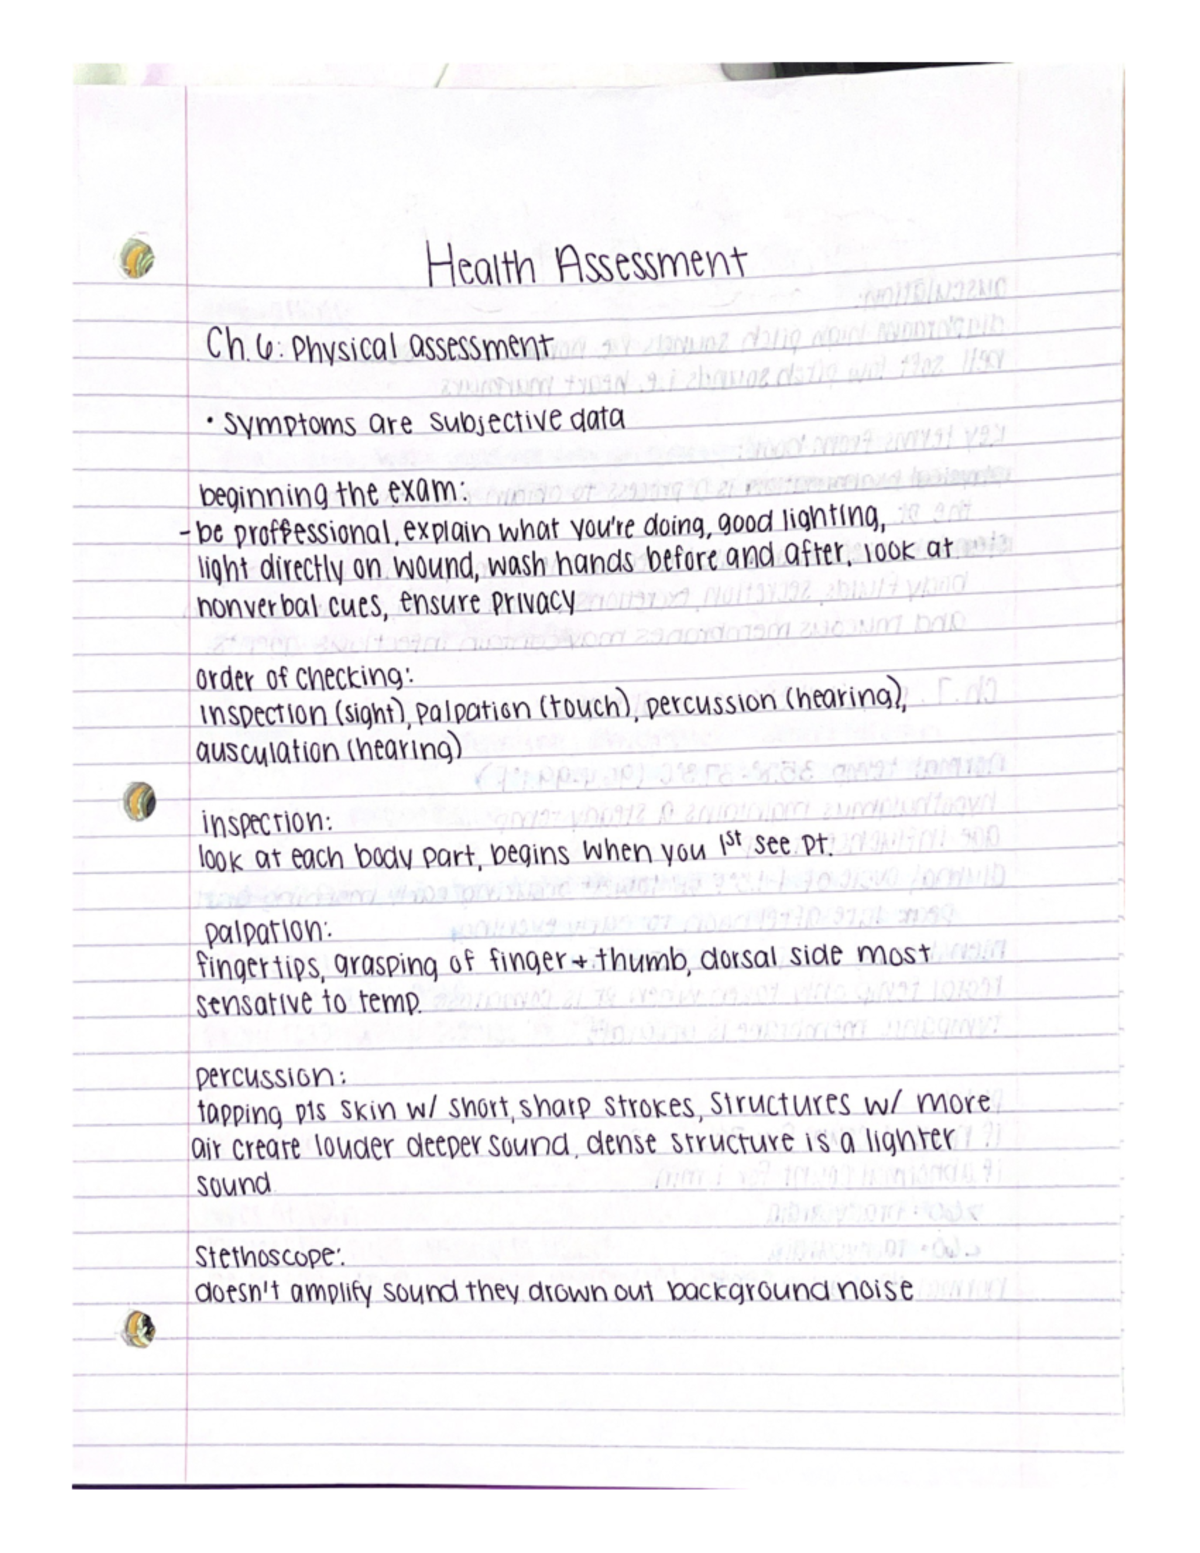 Health Assessment
Ch. 6: Physical assessment
• Symptoms are subjective data
beginning the exam:
- be proffessional, explain what you're doing, good lighting,
light directly on wound, wash hands before and after, look at
nonverbal cues, ensure privacy
order of checking:
Inspection (sight), palpation (touch), percussion (hearing),
ausculation (hearing)
inspection:
look at each body part, begins when you 1st see pt.
palpation:
fingertips, grasping of finger + thumb, dorsal side most
sensative to temp.
percussion:
tapping pts skin w/ short, sharp strokes, structures w/ more
air create louder deeper sound, dense structure is a lighter
sound
Stethoscope:
doesn't amplify sound they drown out background noise